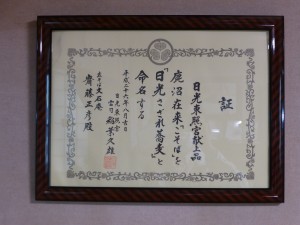 証
日光東照宮献上品
鹿沼在来そばを
「日光さざれ蕎麦」と
命名する
平成二十六年八月六日
日光東照宮
宮司 稲葉久雄
齋藤正彦殿